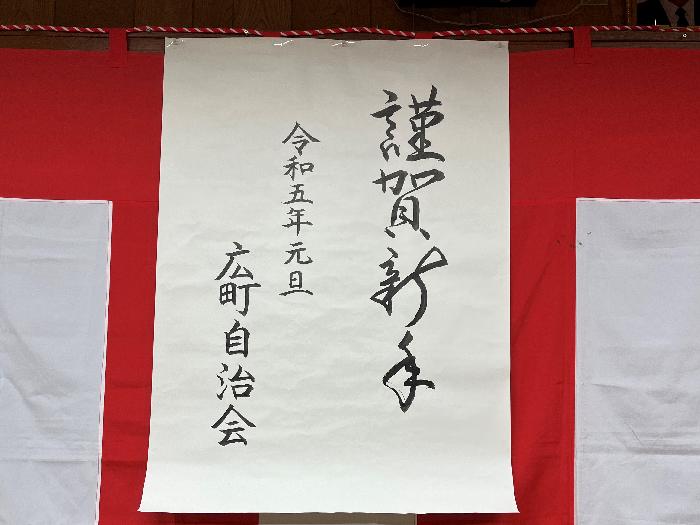 謹賀新年
令和五年元旦
広町自治会